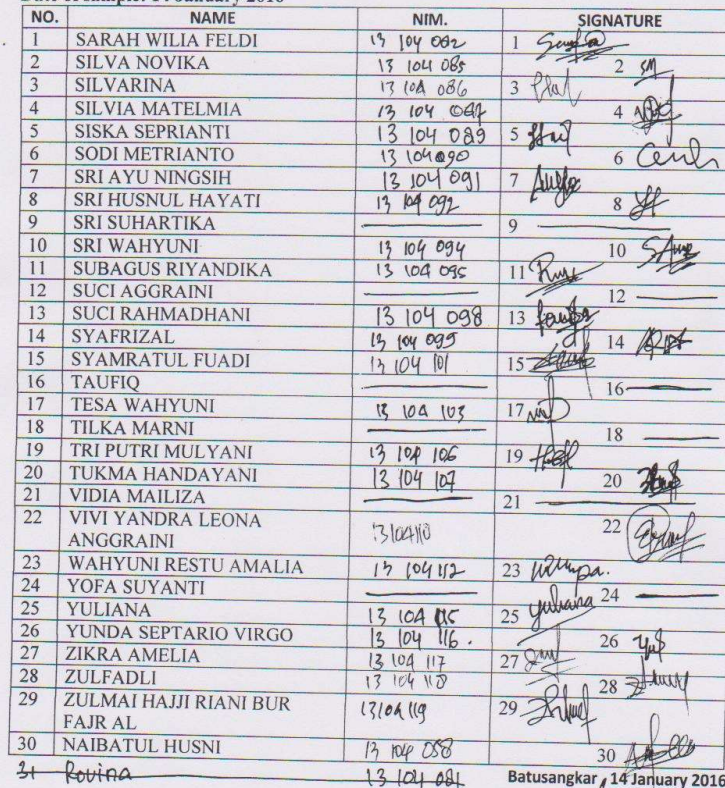 Date of sample: 14 January 2016
NO. NAME NIM. SIGNATURE
1 SARAH WILIA FELDI 13 104 082 1
2 SILVA NOVIKA 13 104 085 2
3 SILVARINA 13 104 086 3
4 SILVIA MATELMIA 13 104 087 4
5 SISKA SEPRIANTI 13 104 089 5
6 SODI METRIANTO 13 104 090 6
7 SRI AYU NINGSIH 13 104 091 7
8 SRI HUSNUL HAYATI 13 104 092 8
9 SRI SUHARTIKA 9
10 SRI WAHYUNI 13 104 094 10
11 SUBAGUS RIYANDIKA 13 104 095 11
12 SUCI AGGRAINI 12
13 SUCI RAHMADHANI 13 104 098 13
14 SYAFRIZAL 13 104 099 14
15 SYAMRATUL FUADI 13 104 101 15
16 TAUFIQ 16
17 TESA WAHYUNI 13 104 103 17
18 TILKA MARNI 18
19 TRI PUTRI MULYANI 13 104 106 19
20 TUKMA HANDAYANI 13 104 107 20
21 VIDIA MAILIZA 21
22 VIVI YANDRA LEONA 22
ANGGRAINI 13104110
23 WAHYUNI RESTU AMALIA 13 104 112 23
24 YOFA SUYANTI 24
25 YULIANA 13 104 115 25 yuliana
26 YUNDA SEPTARIO VIRGO 13 104 116 . 26
27 ZIKRA AMELIA 13 104 117 27
28 ZULFADLI 13 104 118 28
29 ZULMAI HAJJI RIANI BUR 13104119 29
FAJR AL
30 NAIBATUL HUSNI 13 104 058 30
31 Rovina 13 104 081 Batusangkar, 14 January 2016